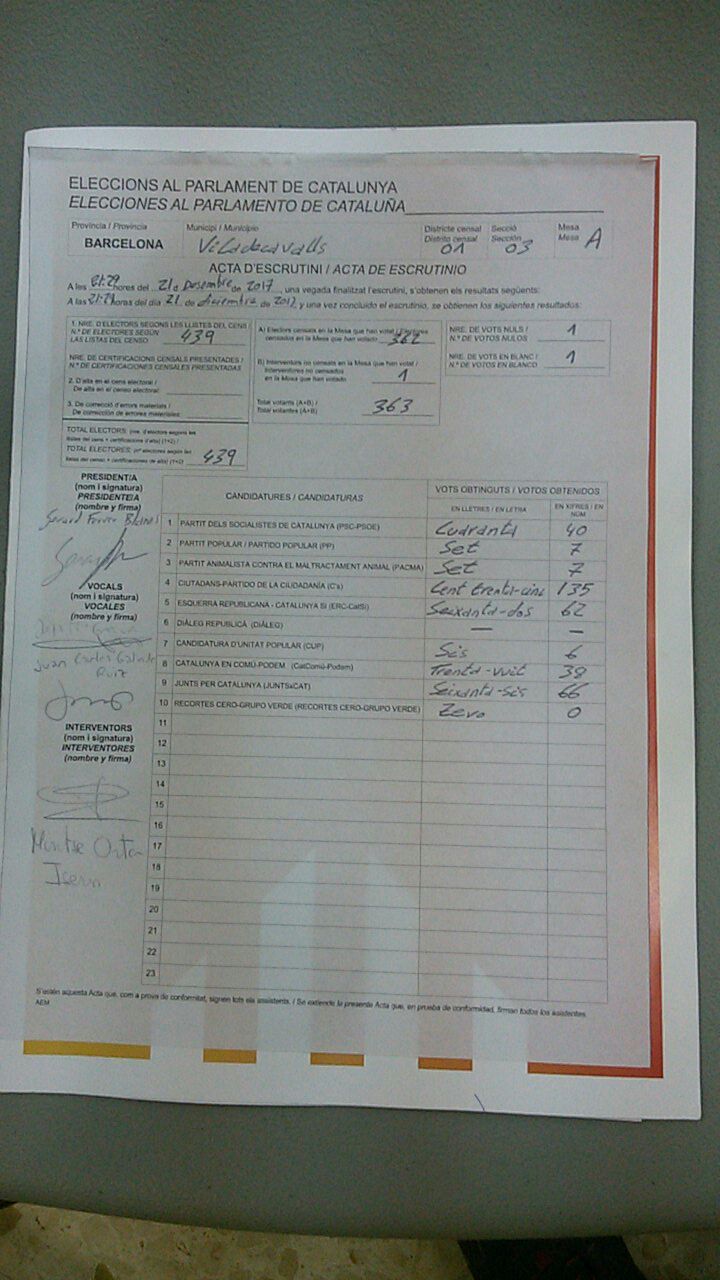 ELECCIONS AL PARLAMENT DE CATALUNYA
ELECCIONES AL PARLAMENTO DE CATALUÑA
Província / Provincia
BARCELONA
Municipi / Municipio
Viladecavalls
Districte censal
Distrito censal
01
Secció
Sección
03
Mesa
Mesa
A
ACTA D'ESCRUTINI / ACTA DE ESCRUTINIO
A les 21:29 hores del 21 de Desembre de 2017, una vegada finalitzat l'escrutini, s'obtenen els resultats següents:
A las 21:29 horas del día 21 de diciembre de 2017, y una vez concluido el escrutinio, se obtienen los siguientes resultados:
1. NRE. D'ELECTORS SEGONS LES LLISTES DEL CENS /
N.º DE ELECTORES SEGÚN
LAS LISTAS DEL CENSO 439
NRE. DE CERTIFICACIONS CENSALS PRESENTADES /
N.º DE CERTIFICACIONES CENSALES PRESENTADAS
2. D'alta en el cens electoral /
De alta en el censo electoral:
3. De correcció d'errors materials /
De corrección de errores materiales:
TOTAL ELECTORS: (nre. d'electors segons les
llistes del cens + certificacions d'alta) (1+2) /
TOTAL ELECTORES: (nº electores según las
listas del censo + certificaciones de alta) (1+2) 439
A) Electors censats en la Mesa que han votat / Electores
censados en la Mesa que han votado 362
B) Interventors no censats en la Mesa que han votat /
Interventores no censados
en la Mesa que han votado 1
Total votants (A+B) /
Total votantes (A+B) 363
NRE. DE VOTS NULS /
N.º DE VOTOS NULOS 1
NRE. DE VOTS EN BLANC /
N.º DE VOTOS EN BLANCO 1
PRESIDENT/A
(nom i signatura)
PRESIDENTE/A
(nombre y firma)
VOCALS
(nom i signatura)
VOCALES
(nombre y firma)
Juan Carlos
Ruiz
INTERVENTORS
(nom i signatura)
INTERVENTORES
(nombre y firma)
Montse
Isern
CANDIDATURES / CANDIDATURAS
VOTS OBTINGUTS / VOTOS OBTENIDOS
EN LLETRES / EN LETRA
EN XIFRES / EN NÚM
1 PARTIT DELS SOCIALISTES DE CATALUNYA (PSC-PSOE) Cuaranta 40
2 PARTIT POPULAR / PARTIDO POPULAR (PP) Set 7
3 PARTIT ANIMALISTA CONTRA EL MALTRACTAMENT ANIMAL (PACMA) Set 7
4 CIUTADANS-PARTIDO DE LA CIUDADANÍA (C's) Cent trenta-cinc 135
5 ESQUERRA REPUBLICANA - CATALUNYA SÍ (ERC-CatSí) Seixanta-dos 62
6 DIÀLEG REPUBLICÀ (DIÀLEG) — —
7 CANDIDATURA D'UNITAT POPULAR (CUP) Sis 6
8 CATALUNYA EN COMÚ-PODEM (CatComú-Podem) Trenta-vuit 38
9 JUNTS PER CATALUNYA (JUNTSxCAT) Seixanta-sis 66
10 RECORTES CERO-GRUPO VERDE (RECORTES CERO-GRUPO VERDE) Zero 0
11
12
13
14
15
16
17
18
19
20
21
22
23
S'estén aquesta Acta que, com a prova de conformitat, signen tots els assistents. / Se extiende la presente Acta que, en prueba de conformidad, firman todos los asistentes.
AEM